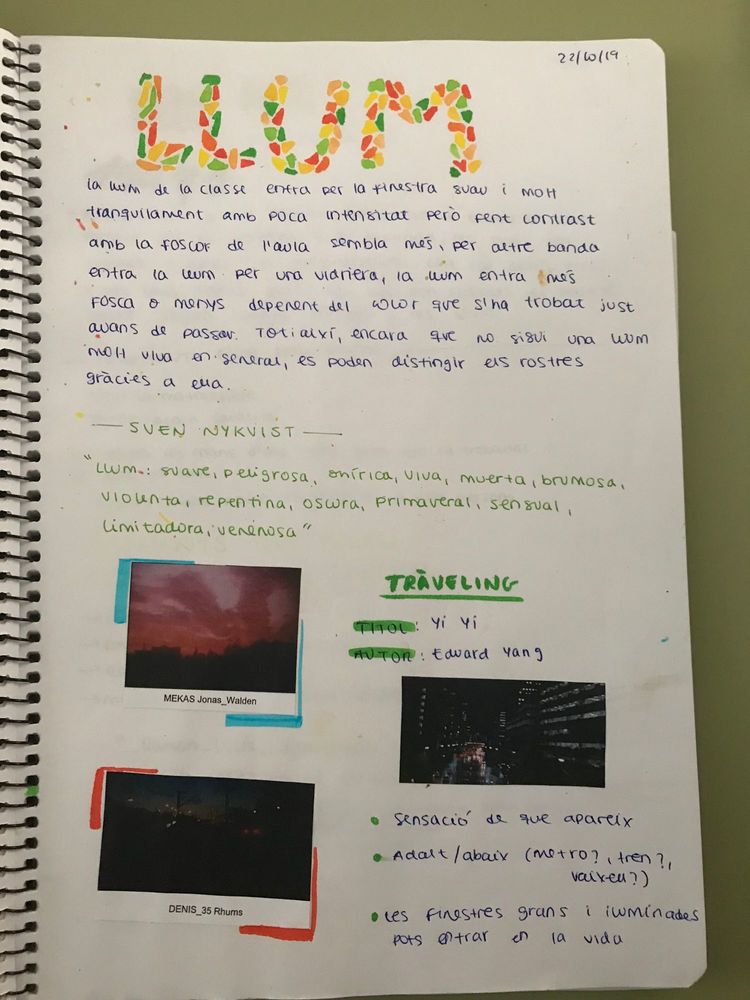 22/10/19
LLUM
la llum de la classe entra per la finestra suau i molt
tranquilament amb poca intensitat però fent contrast
amb la foscor de l'aula sembla més, per altre banda
entra la llum per una vidriera, la llum entra més
fosca o menys depenent del color que s'ha trobat just
avans de passar. Totiaixí, encara que no sigui una llum
molt viva en general, es poden distingir els rostres
gràcies a ella.
— SVEN NYKVIST —
"Llum: suave, peligrosa, onírica, viva, muerta, brumosa,
violenta, repentina, oscura, primaveral, sensual,
limitadora, venenosa"
TRÀVELING
TITOL: Yi Yi
AUTOR: Edward Yang
MEKAS Jonas_Walden
• Sensació de que apareix
• Adalt/abaix (metro?, tren?,
vaixell?)
DENIS_35 Rhums
• Les finestres grans i iluminades
pots entrar en la vida